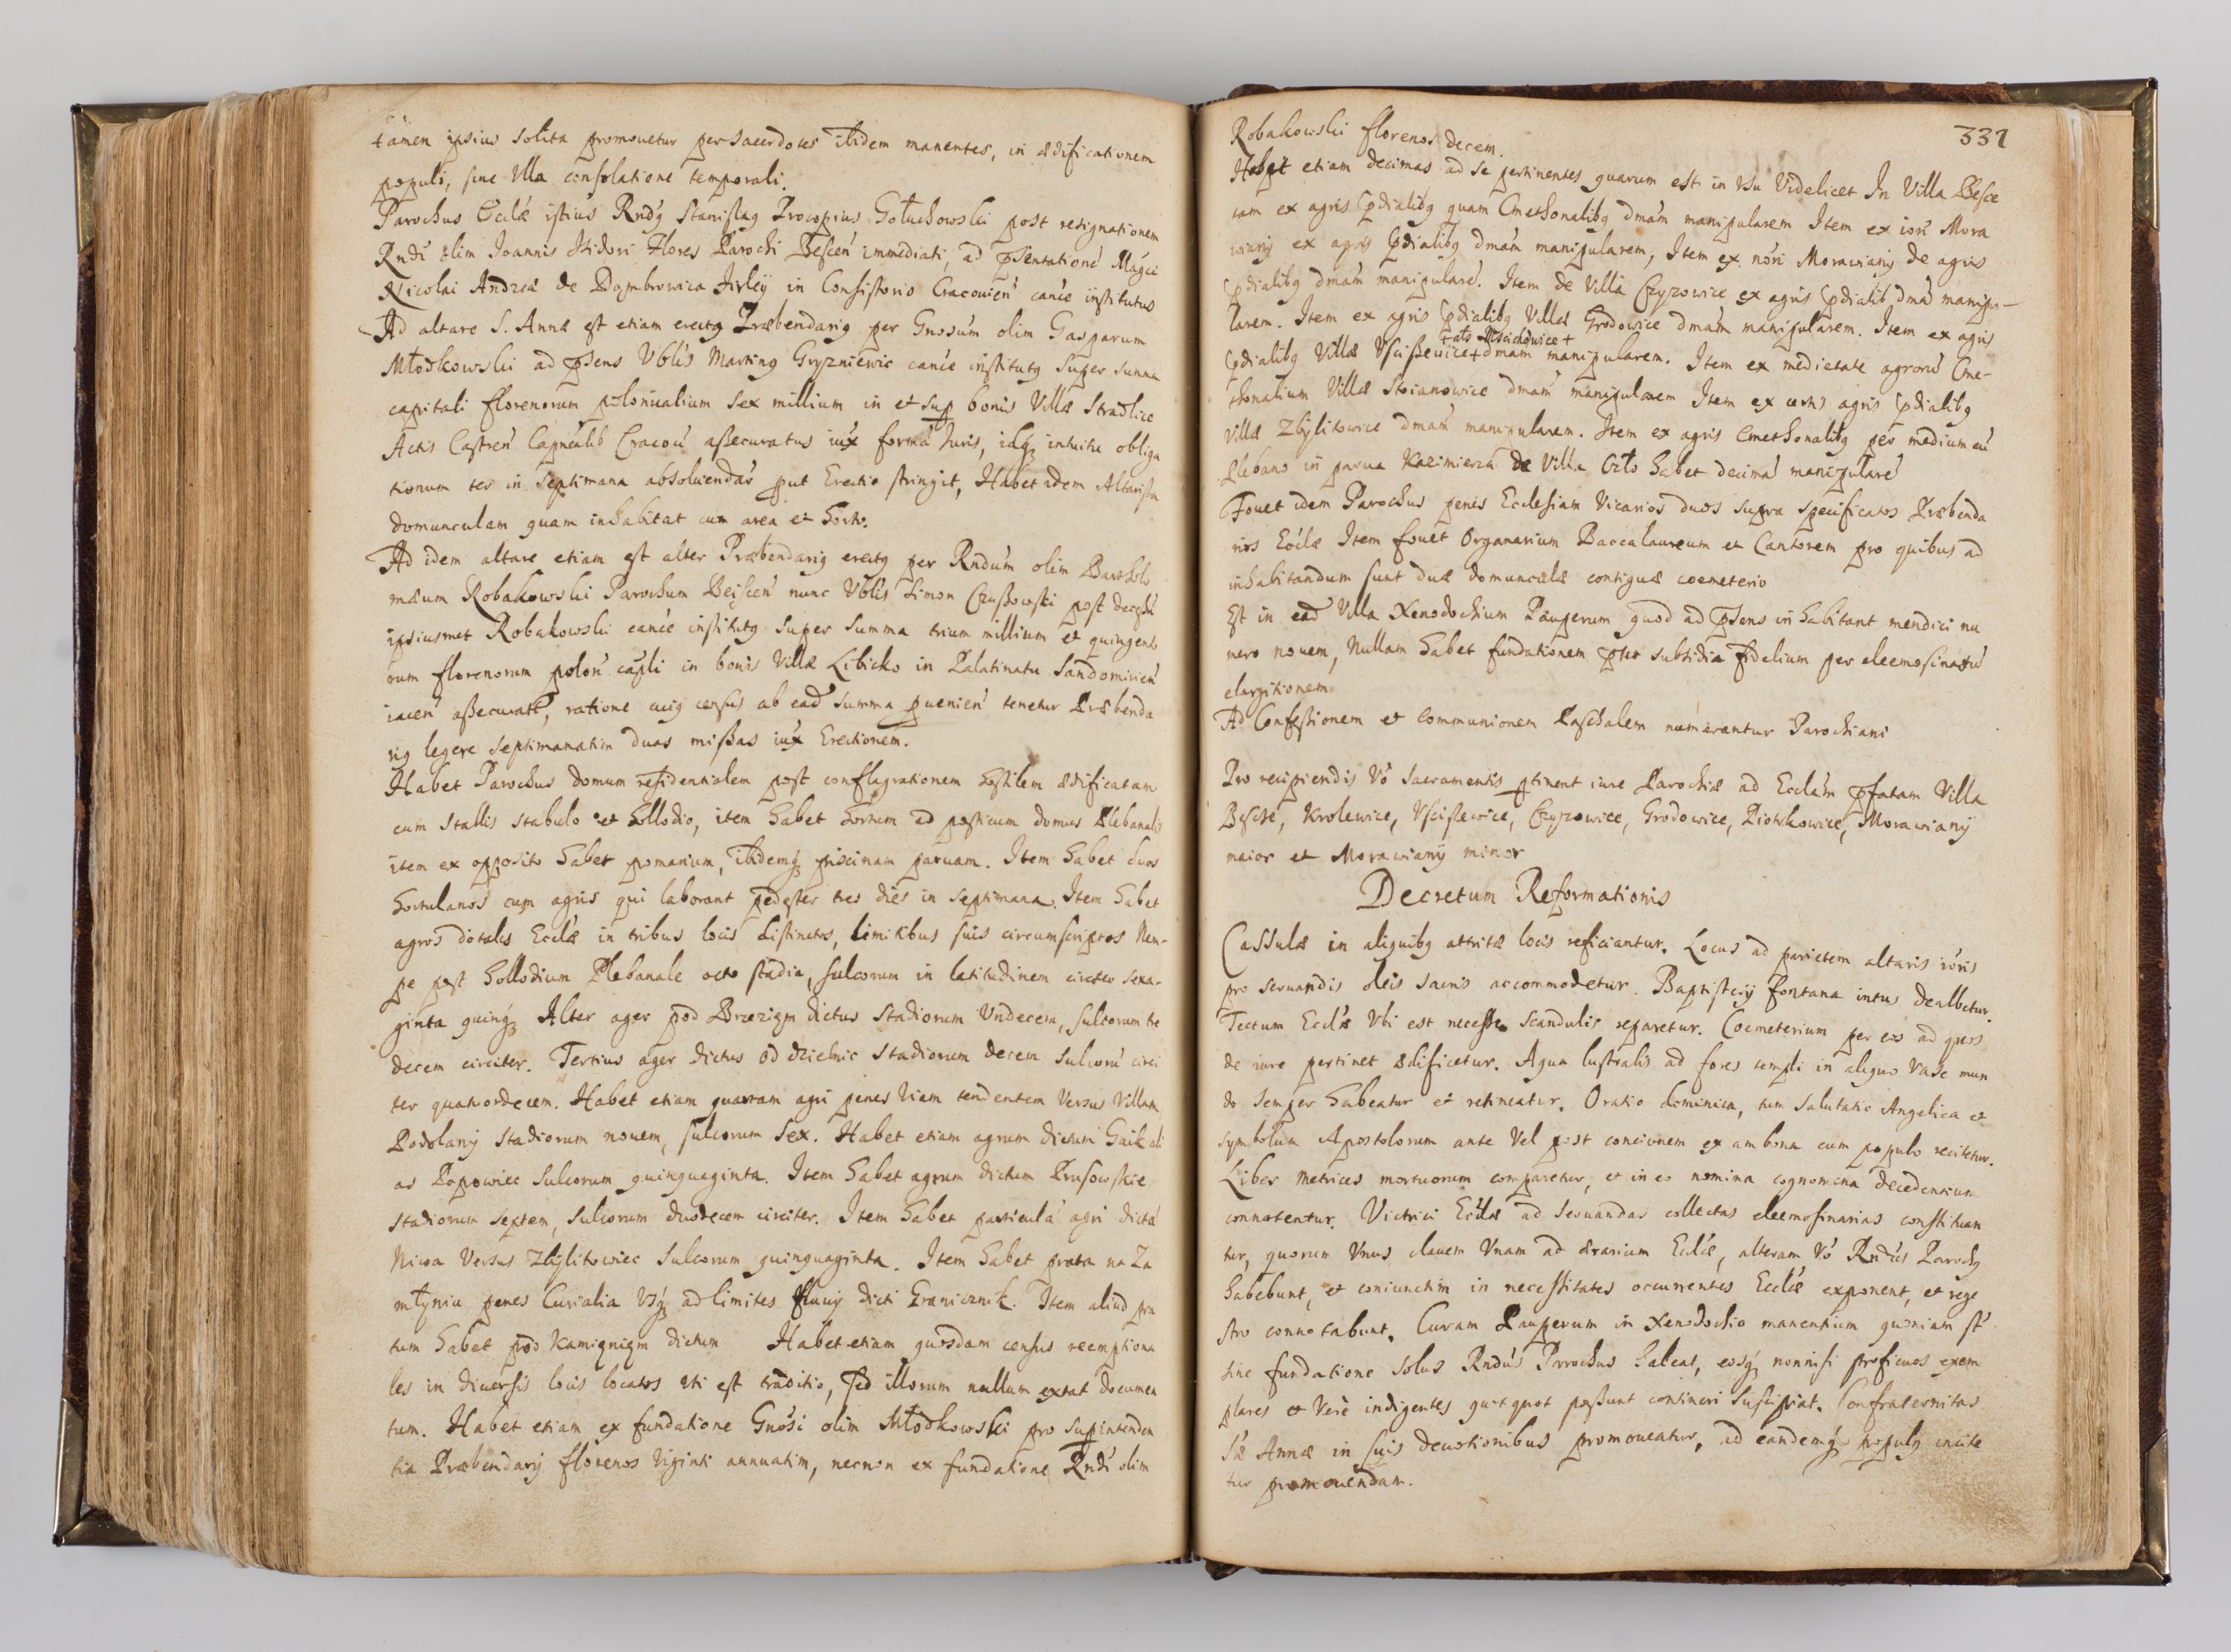 tamen ipsius solita promouetur per Sacerdotes ibidem manentes, in ædificationem
populi, sine Vlla consolatione temporali.
Parochus Ecclæ istius Rndꝰ Stanislaꝰ Procopius Gołuchowski post resignationem
Rndi olim Joannis Isidori Flores Parochi Bescen immediati, ad pñsentationé Magci
Nicolai Andreæ de Dąmbrowica Firleÿ in Consistorio Cracouień cańce institutus
Ad altare S. Annæ est etiam erectꝰ Præbendariꝰ per Gnosum olim Gasparum
Młodkowski ad pñsens Vblis Martinꝰ Gryzniewic cańce institutꝰ super summa
capitali florenorum polonicalium sex millium in et sup bonis Villæ Stradlice
Actis Castreń Capnealib Cracoń assecuratus iux formá Juris, idqꝫ intuitu obliga
tionum ter in septimana absoluendas put Erectio stringit, Habet idem Altarista
domunculam quam inhabitat cum area et horto.
Ad idem altare etiam est alter Præbendariꝰ erectꝰ per Rndum olim Bartholo
mæum Robakowski Parochum Beiscen nunc Vblis Simon Czuszowski post decessũ
ipsiusmet Robakowski cańce institutꝰ super summa trium millium et quingent
orum florenorum poloń capli in bonis Villæ Libicko in Palatinatu Sandomirień
iaceń assecurať, ratione cuiꝰ census ab ead summa puenień tenetur Præbenda
riꝰ legere septimanatim duas missas iux Erectionem.
Habet Parochus domum residentialem post conflagrationem hostilem ædificatam
cum stallis stabulo et hollodio, item habet hortum ad posticum domus Plebanalis
item ex opposito habet pomarium, ibidemqꝫ piscinam paruam. Item habet duos
hortulanos cum agris qui laborant pedester tres dies in septimana. Item habet
agros dotales Ecclæ in tribus locis distinctos, limitibus suis circumscriptos Nem-
pe post hollodium Plebanale octo stadia, sulcorum in latitudinem circiter sexa-
ginta quinqꝫ Alter ager pod Brzezięm dictus stadiorum Vndecem, sulcorum tre
decem circiter. Tertius ager dictus od dzielnic stadiorum decem sulcorũ circi
ter quatuordecem. Habet etiam quartam agri penes Viam tendentem Versus Villam
Podolanÿ stadiorum nouem, sulcorum sex. Habet etiam agrum dictum Gaik ali
as Popowiec sulcorum quinquaginta. Item habet agrum dictum Prusowskie
stadiorum septem, sulcorum duodecem circiter. Item habet particulá agri dictá
Niwa Versus Zbÿlitowiec sulcorum quinquaginta. Item habet prata na Za
młyniu penes Curialia Vsqꝫ ad limites fluuÿ dicti Granicznik. Item aliud pra
tum habet pod Kamięnięm dictum Habet etiam quosdam census reemptiona
les in diuersis locis locatos Vti est traditio, sed illorum nullum extat documen
tum. Habet etiam ex fundatione Gnosi olim Młodkowski pro supintenden
tia Præbendarÿ florenos Viginti annuatim, necnon ex fundatione Rndi olim
331
Robakowski florenos decem.
Habet etiam decimas ad se pertinentes quarum est in Vsu Videlicet In Villa Besce
tam ex agris Pdialibꝰ quam Cmethonalibꝰ dmam manipularem Item ex iori Mora
wianÿ ex agris Pdialibꝰ dmam manipularem, Item ex nori Morawianÿ de agris
Pdialibꝰ dmam manipularé. Item de Villa Czyzowice ex agris Pdialib dmá manipu-
larem. Item ex agris Pdialibꝰ Villæ Grodowice dmam manipularem. Item ex agris
+ als Msciowice +
Pdialibꝰ Villæ Vscissewice + dmam manipularem. Item ex medietate agrorũ Cme-
thonalium Villæ Stoianowice dmam manipularem Item ex certis agris Pdialibꝰ
Villæ Zbÿlitowice dmam manipularem. Item ex agris Cmethonalibꝰ per medium cũ
Plebano in parua Kazimierza de Villa Cżło habet decimá manipularé
Fouet idem Parochus penes Ecclesiam Vicarios duos supra specificatos Præbenda
rios Ecclæ Item fouet Organarium Baccalaureum et Cantorem pro quibus ad
inhabitandum sunt duæ domunculæ contiguæ coemeterio
Est in ead Villa Xenodochium Pauperum quod ad pñsens inhabitant mendici nu
mero nouem, Nullam habet fundationem pter subsidia fidelium per eleemosinarũ
elargitionem
Ad Confessionem et Communionem Paschalem numerantur Parochiani
Pro recipiendis Vo Sacramentis ptinent iure Parochiæ ad Ecclam pfatam Villa
Besche, Krolewice, Vscislewice, Czyzowice, Grodowice, Piotrkowice, Morawianÿ
maior et Morawianÿ minor
Decretum Reformationis
Cassulæ in aliquibꝰ attritæ locis reficiantur. Locus ad parietem altaris ioris
pro seruandis oleis sacris accommodetur. Baptisterÿ fontana intus dealbetur.
Tectum Ecclæ Vbi est necesse scandulis reparetur. Coemeterium per eos ad quos
de iure pertinet ædificetur. Aqua lustralis ad fores templi in aliquo Vase mun
do semper habeatur et retineatur. Oratio dominica, tum Salutatio Angelica et
Symbolum Apostolorum ante Vel post concionem ex ambona cum populo recitetur.
Liber metrices mortuorum comparetur, et in eo nomina cognomina decedentium
connotentur. Victrici Ecclæ ad seruandas collectas eleemosinarias constituan
tur, quorum Vnus clauem Vnam ad ærarium Ecclæ, alteram Vo Rndus Parochꝰ
habebunt, et coniunctim in necessitates occurrentes Ecclæ exponent, et rege
stro connotabunt. Curam Pauperum in Xenodochio manentium quoniam st
sine fundatione solus Rndus Parochus habeat, eosqꝫ nonnisi proficuos exem
plares et Verè indigentes quotquot possunt contineri suscipiat. Confraternitas
Sæ Annæ in suis deuotionibus promoueatur, ad eandemqꝫ populꝰ incite
tur promouendam.